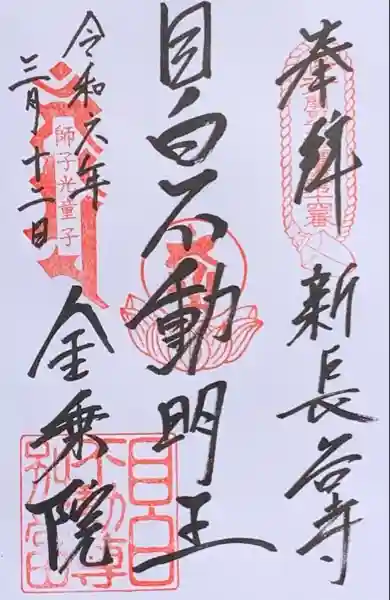 奉拝
新長谷寺
目白不動明王
令和六年
三月十二日
師子光童子
金乗院
目白
不動尊